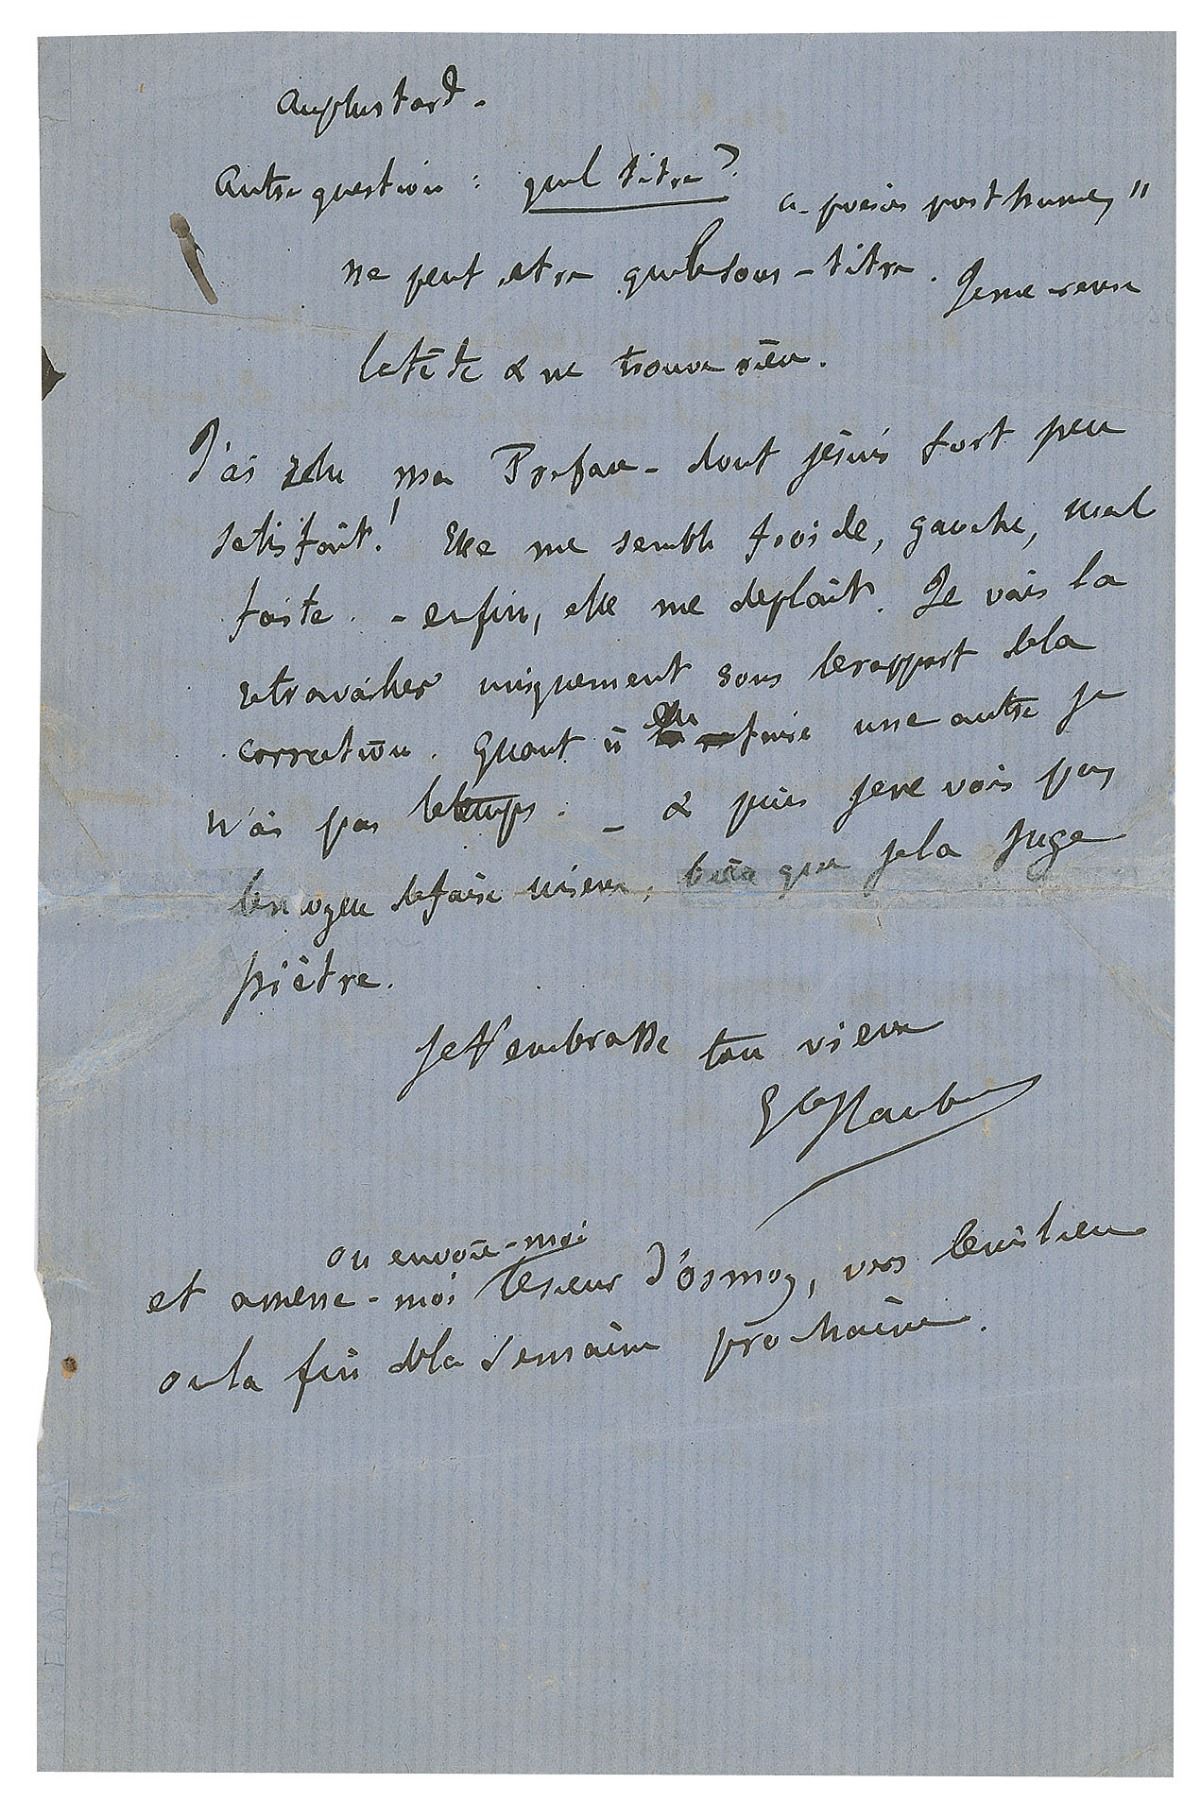 au plus tard.
Autre question : quel titre ?
"poésies posthumes"
ne peut etre que le sous-titre. Je me creuse
la tête & ne trouve rien.
J'ai relu ma Preface - dont je suis fort peu
satisfait ! Elle me semble froide, gauche, mal
faite. - enfin, elle me deplait. Je vais la
retravailler uniquement sous le rapport de la
correction. Quant à en faire une autre je
n'ai pas le temps. - & puis je ne vois pas
le moyen de faire mieux, bien que je la juge
piètre.
Je t'embrasse ton vieux
G Flaubert
ou envoie-moi
et amene-moi le sieur d'Osmoy, vers le milieu
ou la fin de la semaine prochaine.